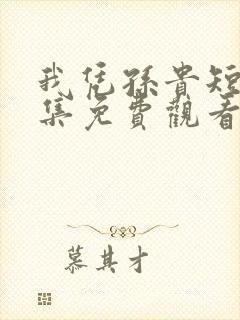 我凭孫貴短
集免費觀看
慕其才